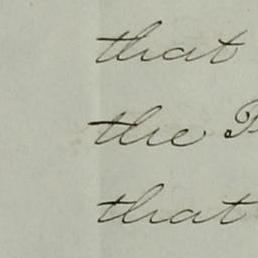 that
the
that